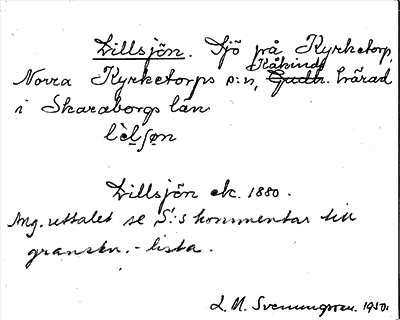 Lillsjön. Sjö på Kyrketorp,
Kåkinds
Norra Kyrketorps s:n, Gudh. härad
i Skaraborgs län
lèlʃøn
Lillsjön ek. 1880.
Ang. uttalet se S:s kommentar till
granskn.-lista.
L. M. Svenungsson. 1950.